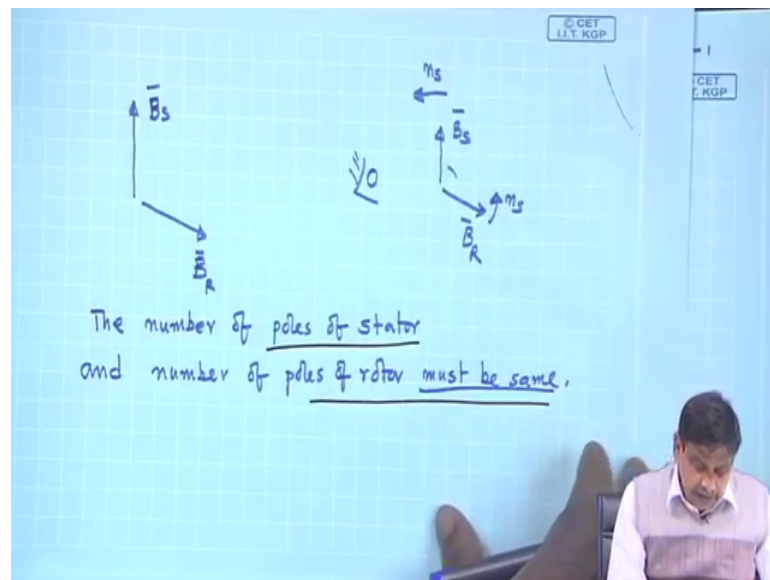 © CET
I.I.T. KGP
- 1
CET
T. KGP
B̄s
B̄R
ns
B̄s
ns
B̄R
The number of poles of stator
and number of poles of rotor must be same.